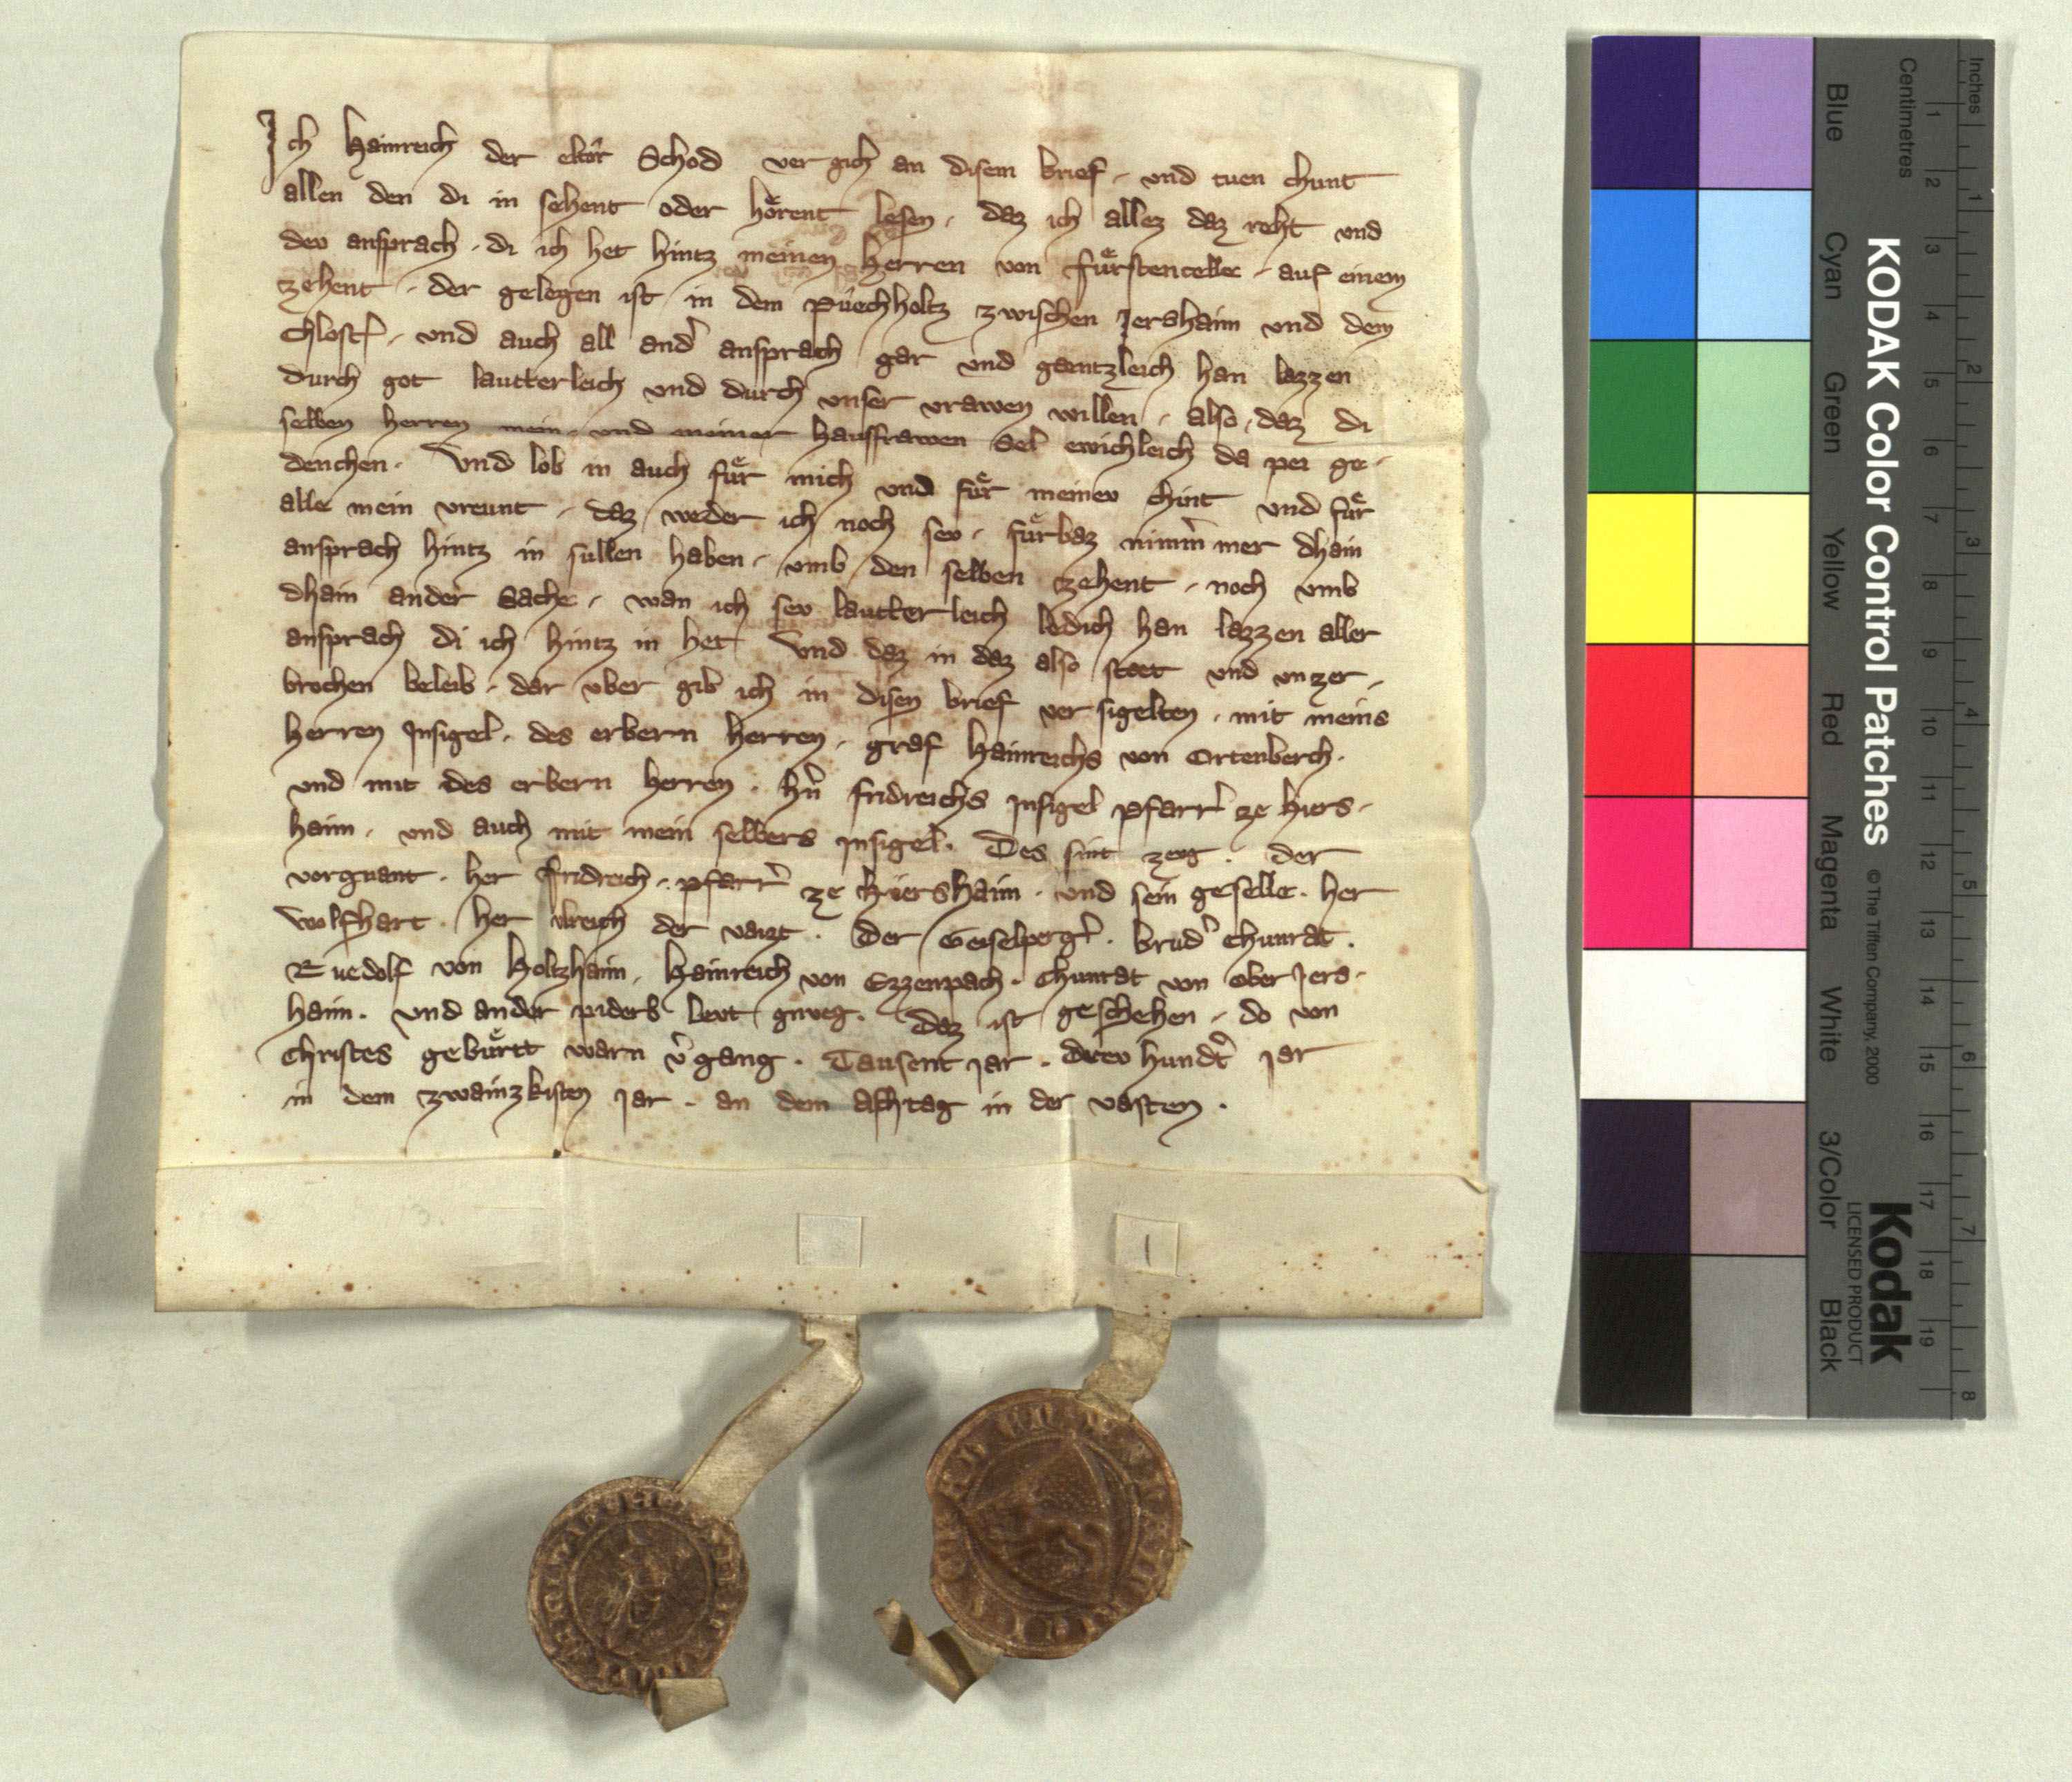 Ich Hainreich der eltͤr Schod ver gich an disem brief · und tuen chunt
allen den di in sehent oder hoͤrent lesen · daz ich allez daz reht und
dev ansprach · di ich het hintz meinen herren von fuͤrstencelle · auf einem
zehent · der gelegen ist in dem puͤechholtz zwischen Jershaim und dem
chlostͤr · und auch all andͤ ansprach gar und gaentzleich han lazzen
durch got lautterleich und durch unser vrawen willen · also daz di
selben herren mein · und meiner hausfrawen Sel ewichleich da pei ge-
denchen · Und lob in auch fuͤr mich und fuͤr meinev chint und fuͤr
alle mein vreunt · daz weder ich noch sev · fuͤrbaz nimm̄ mer dhain
ansprach hintz in sullen haben · umb den selben zehent · noch umb
dhain ander Sache · wan ich sev lautterleich ledich han lazzen aller
ansprach di ich hintz in het Und daz in daz also staet und unzer-
brochen beleib · dar uber gib ich in disen brief ver sigelten · mit meins
herren Insigel · des erbern herren · graf Hainreichs von Ortenberch ·
und mit des erbern herren · hn̄ fridreichs Insigel pfarrͤ ze hiers-
haim · und auch mit mein selbers Insigel · Des sint zevg · der
vorgnant · her fridreich · pfarrͤ ze Hiershaim · und sein geselle · her
wolfhart · her ulreich der vaizt · Der Geiselpergͤ · bruđ chunrat ·
Ruedolf von Holtzhaim · Hainreich von Ezzenpach · Chunrat von Ober Jers-
haim · und ander piderb levt gnveg · Daz ist geschehen · do von
Christes gebuͤrtt warn v̄gang · Tausent jar · Drev hundͤt jar
in dem zwainzkisten jar · an dem Ashtag in der vasten ·
KODAK Color Control Patches
© The Tiffen Company, 2000
Kodak
LICENSED PRODUCT
Blue Cyan Green Yellow Red Magenta White 3/Color Black
Centimetres 1 2 3 4 5 6 7 8 9 10 11 12 13 14 15 16 17 18 19
Inches 1 2 3 4 5 6 7 8